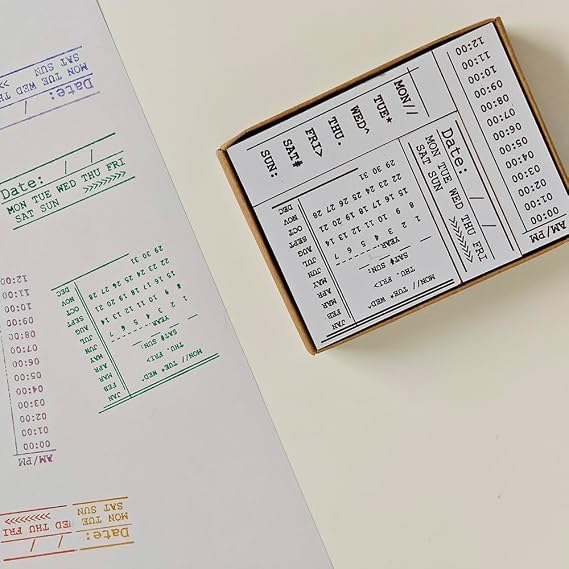 Date: / /
MON TUE WED THU
SAT SUN >>
Date: / /
MON TUE WED THU FRI
SAT SUN >>>>>>>>>
MON// TUE* WED^
THU. FRI>
SAT# SUN:
YEAR
1 2 3 4 5 6 7
8 9 10 11 12 13 14
15 16 17 18 19 20 21
22 23 24 25 26 27 28
29 30 31
JAN
FEB
MAR
APR
MAY
JUN
JUL
AUG
SEPT
OCT
NOV
DEC
AM/PM
00:00
01:00
02:00
03:00
04:00
05:00
06:00
07:00
08:00
09:00
10:00
11:00
12:00
Date:
MON TUE
SAT SUN
/ /
WED THU FRI
<<<<<<<<<
MON//
TUE*
WED^
THU.
FRI>
SAT#
SUN:
Date: / /
MON TUE WED THU FRI
SAT SUN >>>>>>>>>
MON// TUE* WED^
THU. FRI>
SAT# SUN:
YEAR
1 2 3 4 5 6 7
8 9 10 11 12 13 14
15 16 17 18 19 20 21
22 23 24 25 26 27 28
29 30 31
JAN
FEB
MAR
APR
MAY
JUN
JUL
AUG
SEPT
OCT
NOV
DEC
AM/PM
00:00
01:00
02:00
03:00
04:00
05:00
06:00
07:00
08:00
09:00
10:00
11:00
12:00